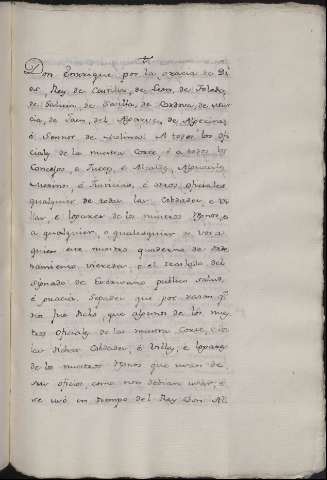 Don Enrrique por la gracia de Di
os, Rey de Castilla, de Leon, de Toledo,
de Galicia, de Sevilla, de Cordova, de Mur
cia, de Jaen, del Algarve, de Algecira,
é Sennor de Molina: A todos los ofi
ciales de la nuestra Corte, é a todos los
Concejos, e Jueces, é Alcalles, Alguaciles,
Merinos, é Justicias, é otros oficiales
qualquier de todas las Cibdades, é Vi
llas, é logares de los nuestros Regnos, é
a qualquier, o qualesquier de vos a
quien este nuestro quaderno de
vieredes, o el treslado del
signado de Escrivano publico salud,
é gracia. Sepades que por razon q.
nos fue dicho, que algunos de los nues
tros oficiales de la nuestra Corte, é de
las dichas Cibdades, é Villas, é logares
de los nuestros Regnos que usan de
sus oficios, como non debian usar, é
se usó en tiempo del Rey Don Al